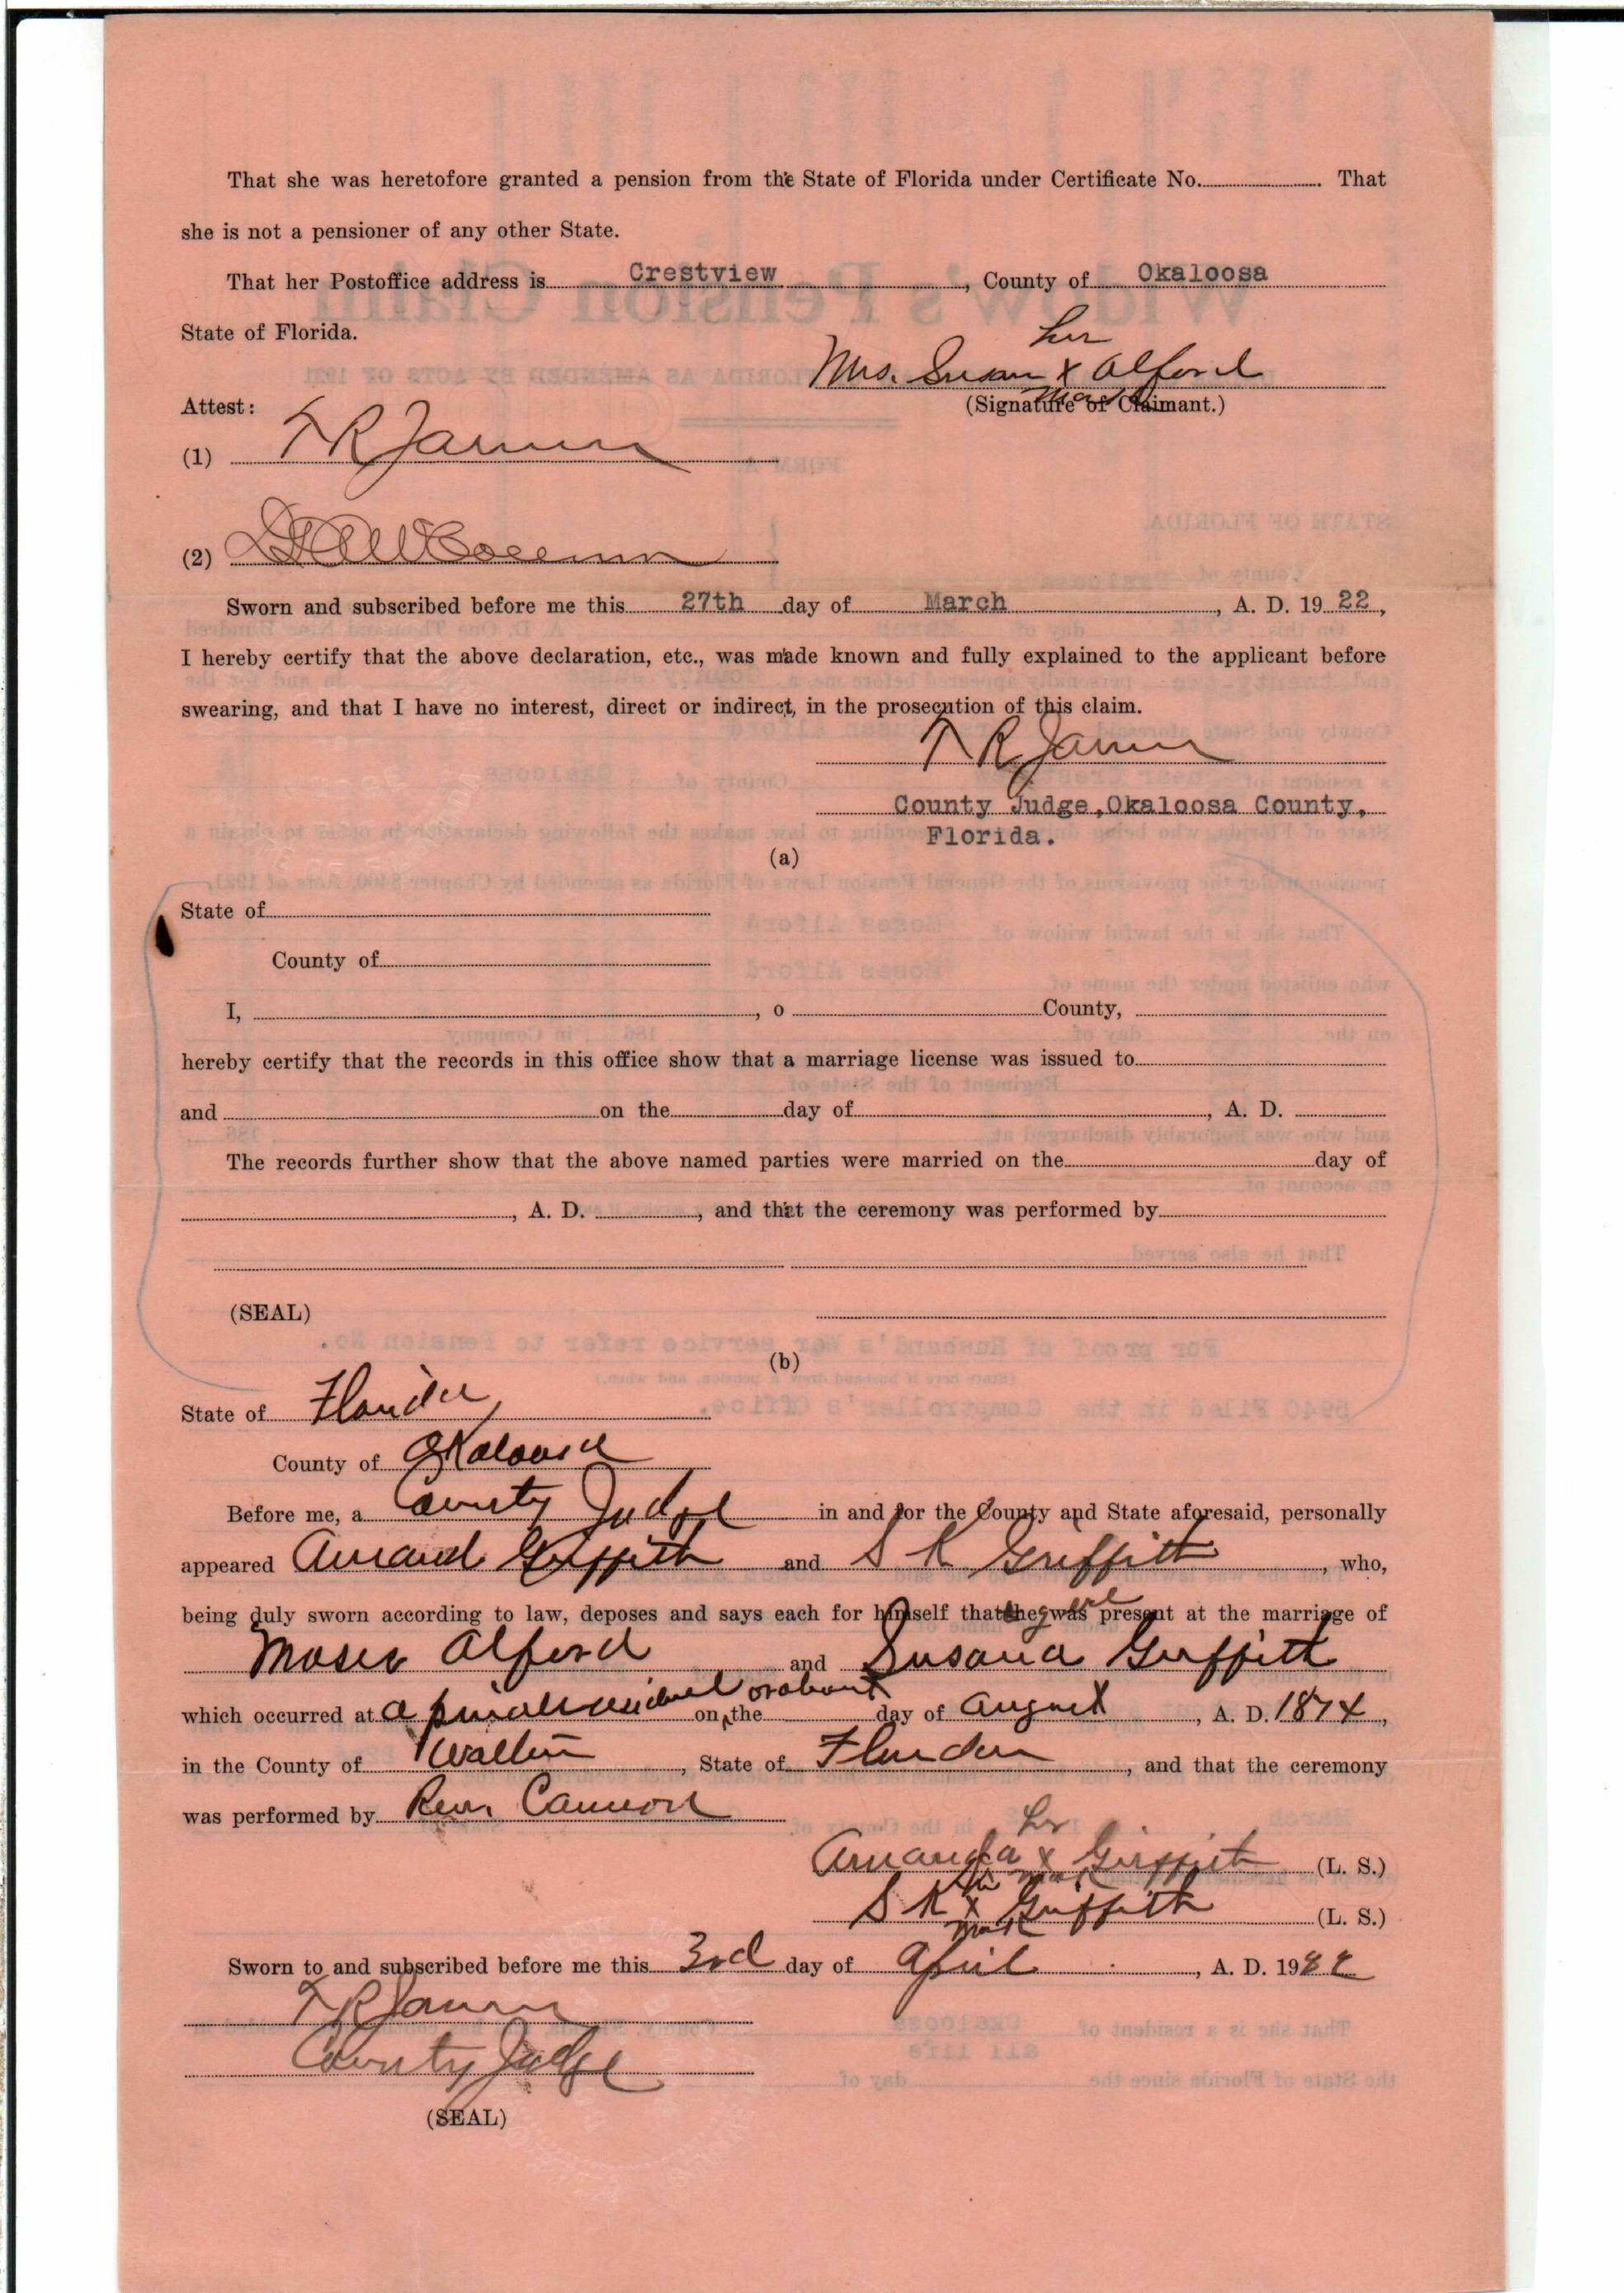 That she was heretofore granted a pension from the State of Florida under Certificate No. . That
she is not a pensioner of any other State.
That her Postoffice address is Crestview , County of Okaloosa
State of Florida.
her
Mrs. Susan x Alford
mark
(Signature of Claimant.)
Attest:
(1) T R
(2)
Sworn and subscribed before me this 27th day of March , A. D. 19 22,
I hereby certify that the above declaration, etc., was made known and fully explained to the applicant before
swearing, and that I have no interest, direct or indirect, in the prosecution of this claim.
T R
County Judge, Okaloosa County,
Florida.
(a)
State of
County of
I, , o County,
hereby certify that the records in this office show that a marriage license was issued to
and on the day of , A. D.
The records further show that the above named parties were married on the day of
, A. D. , and that the ceremony was performed by
(SEAL)
(b)
State of Florida
County of Okaloosa
Before me, a County Judge in and for the County and State aforesaid, personally
appeared Amand Griffith and S K Griffith , who,
being duly sworn according to law, deposes and says each for himself that he was present at the marriage of
Moses Alford and Susana Griffith
or about
which occurred at a on the day of August , A. D. 1874,
in the County of Walton , State of Florida , and that the ceremony
was performed by Rev. Cannon
her
Amanda x Griffith (L. S.)
mark
his
S K x Griffith (L. S.)
mark
Sworn to and subscribed before me this 3rd day of April , A. D. 1922
T R
County Judge
(SEAL)